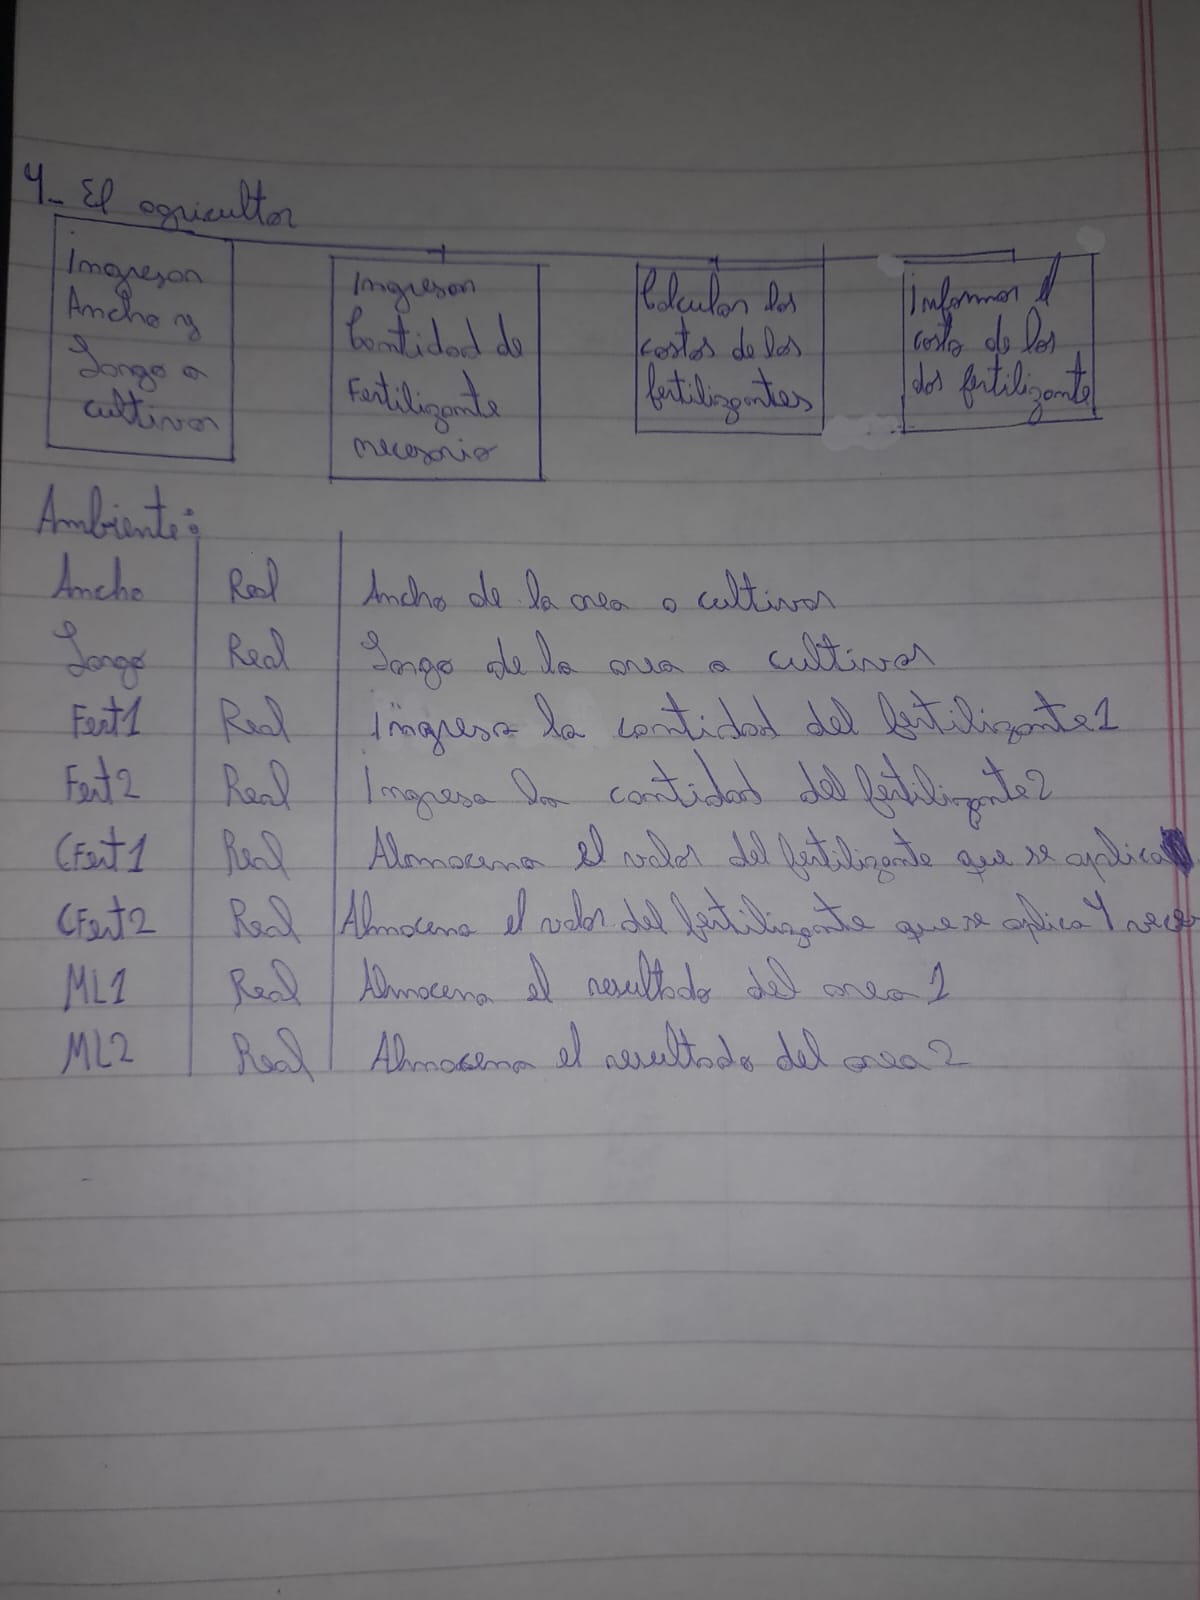 4- El agricultor
Ingresar
Ancho y
Largo a
cultivar
Ingresar
Cantidad de
Fertilizante
necesario
Calcular los
costos de los
fertilizantes
informar el
costo de los
dos fertilizante
Ambiente:
Ancho Real Ancho de la area a cultivar
Largo Real Largo de la area a cultivar
Fert1 Real ingresa la cantidad del fertilizante1
Fert2 Real Ingresa la cantidad del fertilizante2
CFert1 Real Alomacena el valor del fertilizante que se aplica
CFert2 Real Almacena el valor del fertilizante que se aplica 4 vece
ML1 Real Almacena el resultado del area 1
ML2 Real Almacena el resultado del area 2